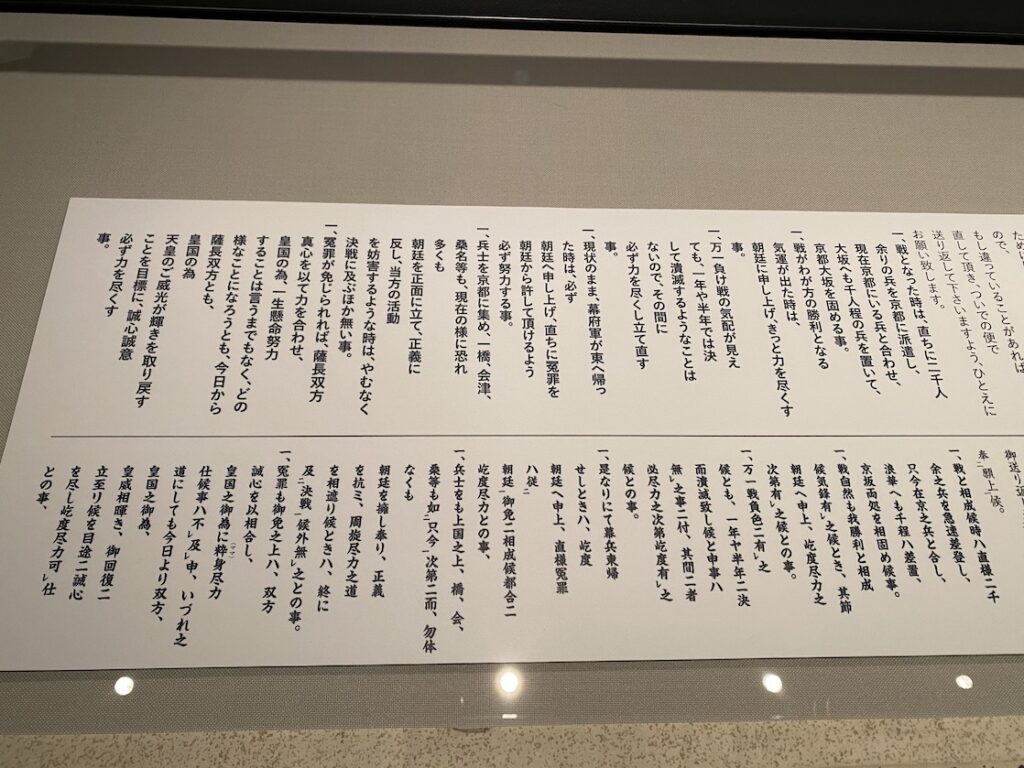 ので、
もし違っていることがあれば
直して頂き、ついでの便で
送り返して下さいますよう、ひとえに
お願い致します。
一、戦となった時は、直ちに二千人
余りの兵を京都に派遣し、
現在京都にいる兵と合わせ、
大坂へも千人程の兵を置いて、
京都大坂を固める事。
一、戦がわが方の勝利となる
気運が出た時は
朝廷に申し上げ、きっと力を尽くす
事。
一、万一負け戦の気配が見え
ても、一年や半年では決
して潰滅するようなことは
ないので、その間に
必ず力を尽くし立て直す
事。
一、現状のまま、幕府軍が東へ帰っ
た時は、必ず
朝廷へ申し上げ、直ちに冤罪を
朝廷から許して頂けるよう
必ず努力する事。
一、兵士を京都に集め、一橋、会津、
桑名等も、現在の様に恐れ
多くも
朝廷を正面に立て、正義に
反し、当方の活動
を妨害するような時は、やむなく
決戦に及ぶほか無い事。
一、冤罪が免じられれば、薩長双方
真心を以て力を合わせ、
皇国の為、一生懸命努力
することは言うまでもなく、どの
様なことになろうとも、今日から
薩長双方とも、
皇国の為
天皇のご威光が輝きを取り戻す
ことを目標に、誠心誠意
必ず力を尽くす
事。
奉二願上一候。
一、戦と相成候時ハ直様二千
余之兵を急速差登し、
只今在京之兵と合し、
浪華へも千程ハ差置、
京坂両処を相固め候事。
一、戦自然も我勝利と相成
候気鋒有レ之候とき、其節
朝廷へ申上、屹度尽力之
次第有レ之候との事。
一、万一戦負色ニ有レ之
候とも、一年ヤ半年ニ決
而潰滅致し候と申事ハ
無レ之事ニ付、其間ニ者
必尽力之次第屹度有レ之
候との事。
一、是なりにて幕兵東帰
せしときハ、屹度
朝廷へ申上、直様冤罪
ハ従二
朝廷一御免ニ相成候都合ニ
屹度尽力との事、
一、兵士をも上国之上、橋、会、
桑等も如二只今一次第ニ而、勿体
なくも
朝廷を擁し奉り、正義
を抗ミ、周旋尽力之道
を相遮り候ときハ、終に
及二決戦一候外無レ之との事。
一、冤罪も御免之上ハ、双方
誠心を以相合し、
皇国之御為に粋身尽力
仕候事ハ不レ及レ申、いづれ之
道にしても今日より双方、
皇国之御為、
皇威相暉き、御回復ニ
立至り候を目途ニ誠心
を尽し屹度尽力可レ仕
との事、